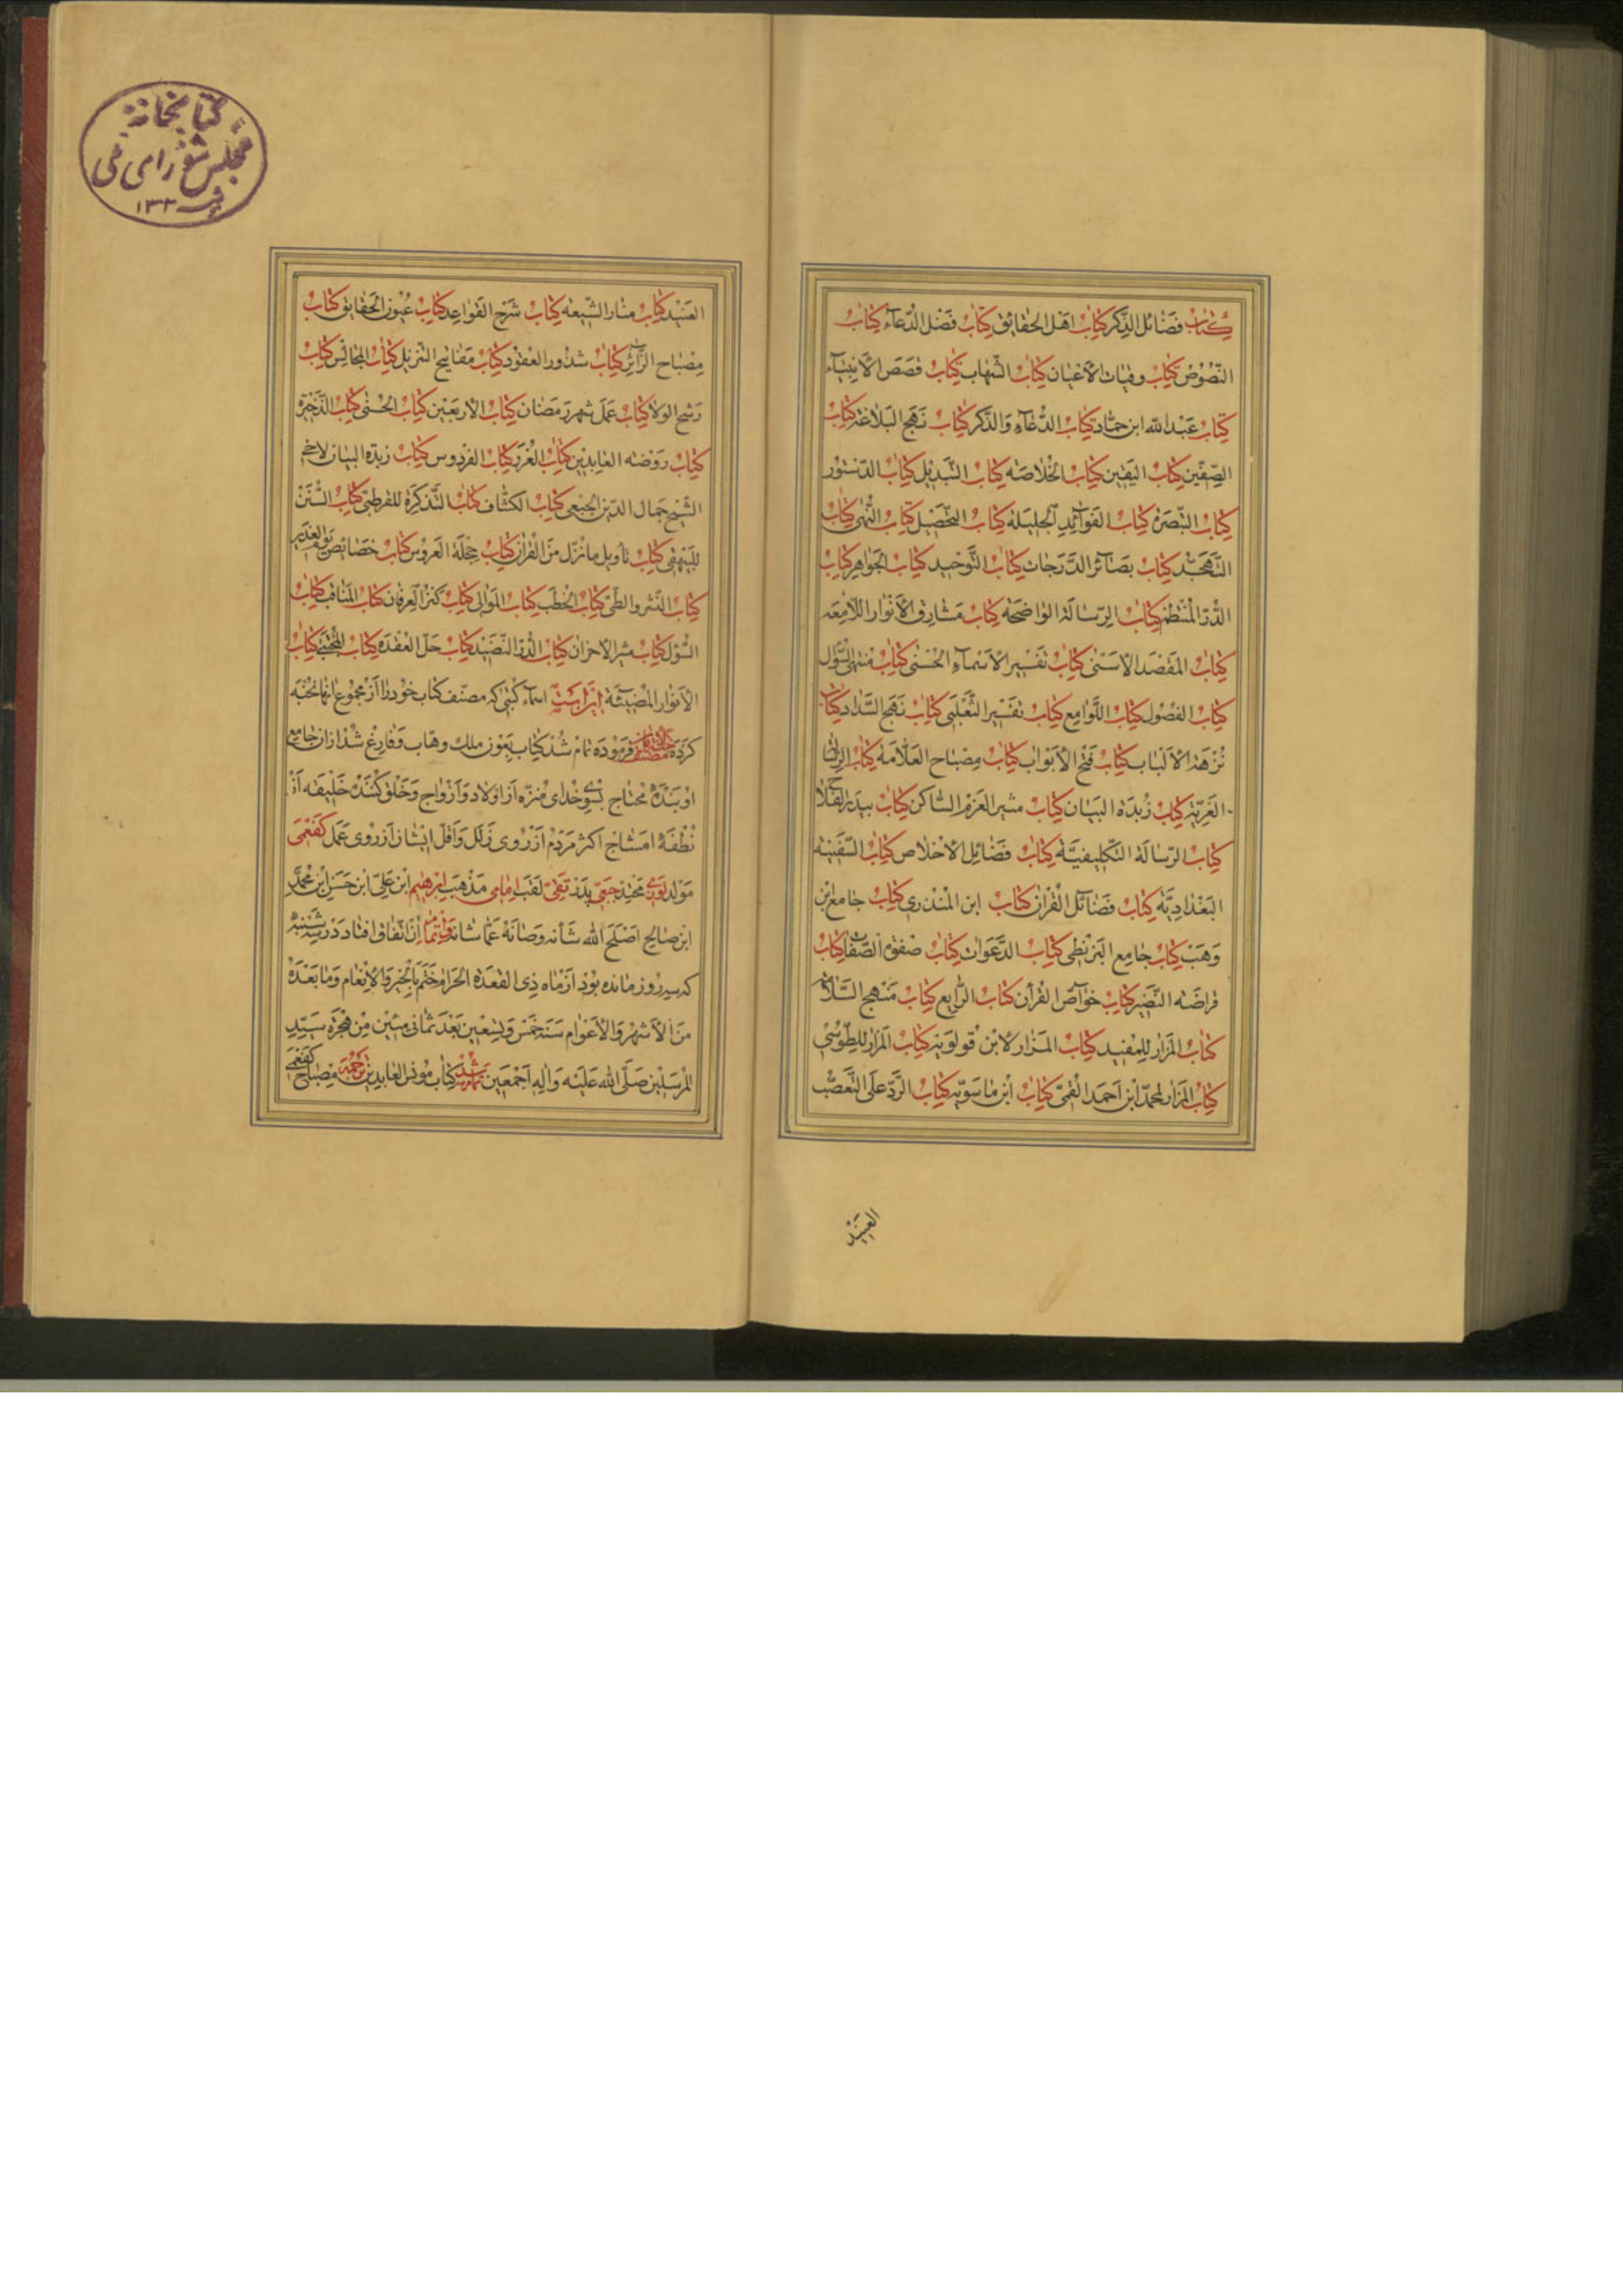 كتاب فضائل الذكر كتاب اهل الحقائق كتاب فضل الدعاء كتاب
النصوص كتاب وفيات الأعيان كتاب الشهاب كتاب قصص الأنبياء
كتاب عبد الله ابن حماد كتاب الدعاء والذكر كتاب نهج البلاغة كتاب
الصفين كتاب اليقين كتاب الخلاصه كتاب التبديل كتاب الدستور
كتاب التبصرة كتاب الفوائد الجليلة كتاب التحصيل كتاب النهى كتاب
التهجد كتاب بصائر الدرجات كتاب التوحيد كتاب الجواهر كتاب
الدر المنتظم كتاب الرسالة الواضحة كتاب مشارق الأنوار اللامعه
كتاب المقصد الأسنى كتاب تفسير الأسماء الحسنى كتاب منتهى السؤل
كتاب الفصول كتاب اللوامع كتاب تفسير الثعلبى كتاب نهج السداد كتاب
نزهة الألباب كتاب فتح الأبواب كتاب مصباح العلامة كتاب
العزية كتاب زبدة البيان كتاب مثير العزم الساكن كتاب بيدر الفلاح
كتاب الرسالة التكليفية كتاب فضائل الأخلاص كتاب السفينه
البغدادية كتاب فضائل القرآن كتاب ابن المنذرى كتاب جامع ابن
وهب كتاب جامع البزنطى كتاب الدعوات كتاب صفوة الصفات كتاب
قراضه النضير كتاب خواص القرآن كتاب الرابع كتاب منهج السلامة
كتاب المزار للمفيد كتاب المزار لابن قولويه كتاب المزار للطوسى
كتاب المزار لمحمد ابن احمد القمى كتاب ابن ماسويه كتاب الرد على التعصب
العنيد
كتابخانهٔ
مجلس شورای ملی
۱۳۳
العنيد كتاب منار الشيعه كتاب شرح القواعد كتاب عيون الحقايق كتاب
مصباح الزائر كتاب شذور العقود كتاب مفاتيح التنزيل كتاب المجالس كتاب
رشح الولا كتاب عمل شهر رمضان كتاب الأربعين كتاب الحسنى كتاب الذخيرة
كتاب روضه العابدين كتاب الغرر كتاب الفردوس كتاب زبدة البيان لاخ
الشيخ جمال الدين الجبعى كتاب الكشاف كتاب التذكرة للقرطبى كتاب السنن
للبيهقى كتاب تأويل ما نزل من القرآن كتاب حجلة العروس كتاب خصائص يوم الغدير
كتاب النشر والطى كتاب الخطب كتاب الموالى كتاب كنز العرفان كتاب المناقب كتاب
السؤل كتاب مثير الأحزان كتاب الدر النضيد كتاب حل العقدة كتاب المجتبى كتاب
الأنوار المضيئة اينست اسماء كتبى كه مصنف كتاب خود را از مجموع انها نخبه
كرده مصنف فرموده تمام شد كتاب بعون ملك وهاب وفارغ شد از ان جامع
او بنده محتاج بسوى خداى منزه از اولاد وازواج وخلق كننده خليفه از
نطفه امشاج اكثر مردم از روى زلل واقل ايشان از روى عمل كفعمى
مولد لويزى محتد جبعى پدر تقى لقب امامى مذهب ابرهيم ابن على ابن حسن ابن محمد
ابن صالح اصلح الله شأنه وصانه عما شانه واتمام ان اتفاق افتاد در سه شنبه
كه سه روز مانده بود از ماه ذى القعده الحرام ختم بالخير والأنعام وما بعده
من الأشهر والأعوام سنه خمس وتسعين بعد ثمانى مئين من هجرة سيد
المرسلين صلى الله عليه واله اجمعين تمام شد كتاب مونس العابدين ترجمه مصباح كفعمى